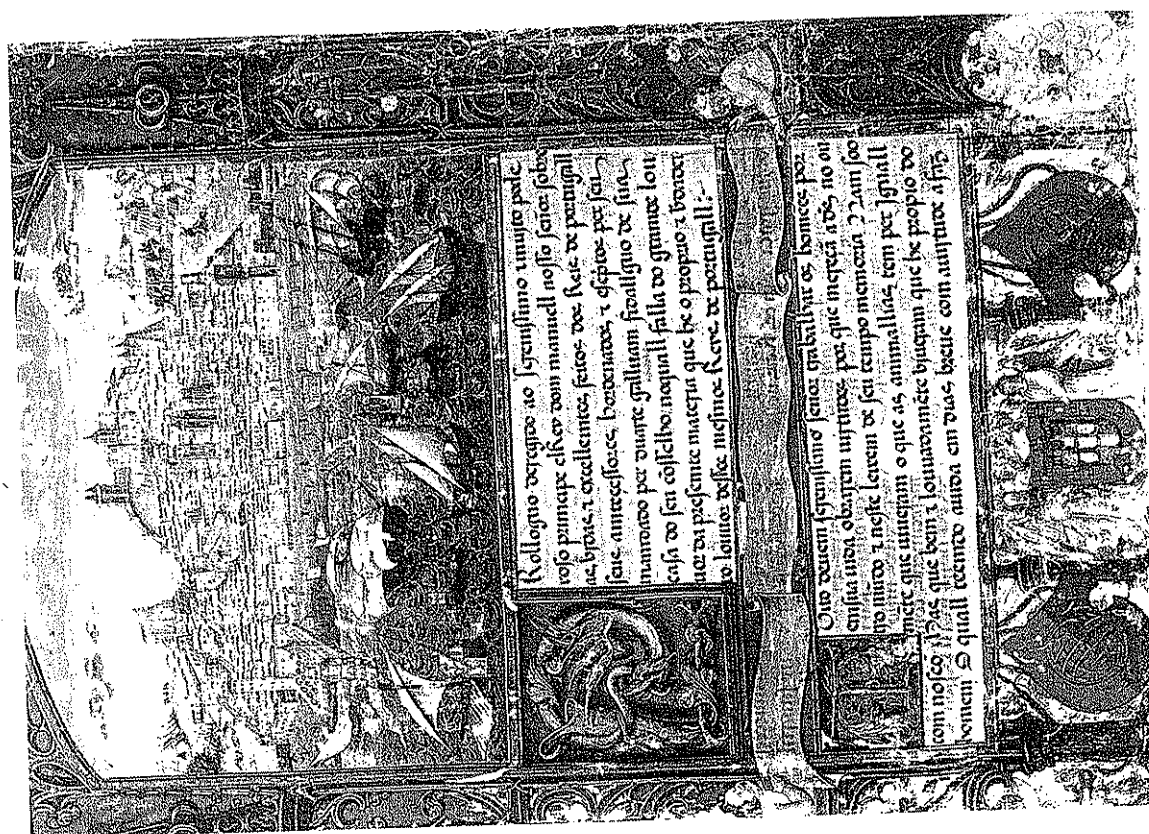 Rollogno deregido ao serenissimo z muyto pode
roso principe elRey dom manuell nosso senor sobre
as z excellentes, feitos dos Reis de portugall
seus anteçessores, hordenados, z sciptos per seu
mandado per duarte galluam fidallguo de sua
casa do seu cõselho: no quall falla do grande lou
uor da presente materia que he o proprio z
ro louuor deste mesmos Reyno de portugall:-
Uito deuem serenissimo senor trabalhar os, homees, por
em sua uida obrarem uirtudes por que mereçã a dẽs no ou
tro mũdo z neste leixarem de seu tempo memoria nam soo
mente que uiueram o que as, animallias, tem per Jguall
com nosco Mas, que bem z louuadamẽte que he propio do
homem O quall seendo auida em dias, breue com uirtude a